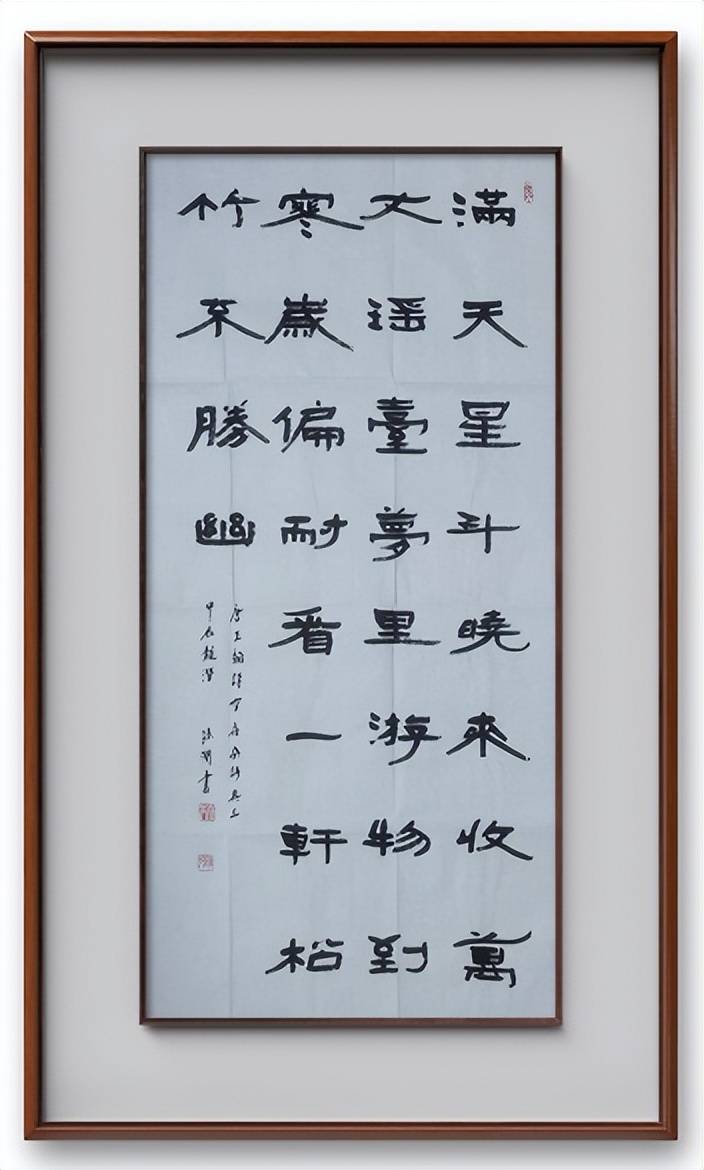 滿天星斗曉來收萬
丈瑶臺夢里游物到
寒歲偏耐看一軒松
竹不勝幽
甲辰 書